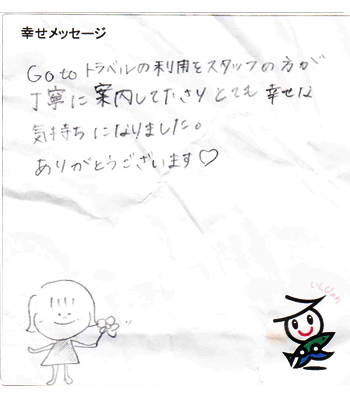 幸せメッセージ
Go to トラベルの利用をスタッフの方が
丁寧に案内して下さりとても幸せな
気持ちになりました。
ありがとうございます♡